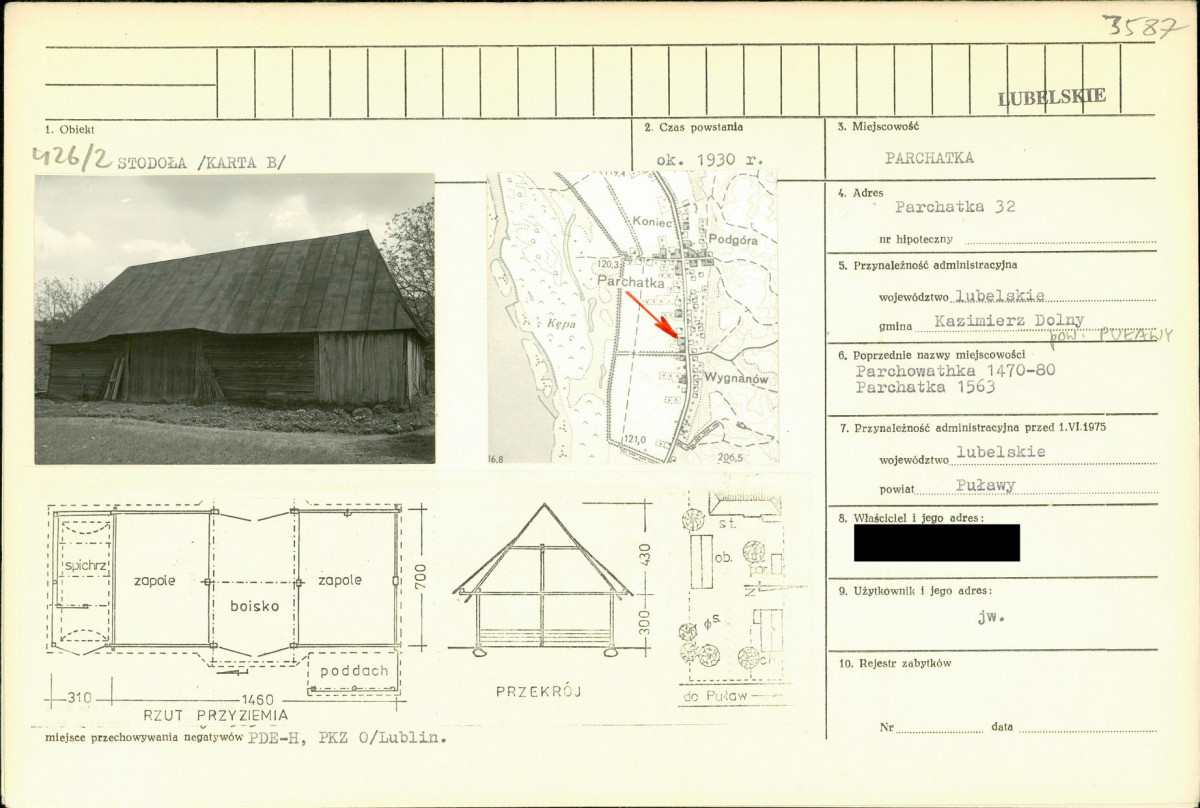 3587
LUBELSKIE
1. Obiekt
426/2 STODOŁA /KARTA B/
2. Czas powstania
ok. 1930 r.
3. Miejscowość
PARCHATKA
4. Adres
Parchatka 32
nr hipoteczny
5. Przynależność administracyjna
województwo lubelskie
gmina Kazimierz Dolny
pow. PUŁAWY
6. Poprzednie nazwy miejscowości
Parchowathka 1470-80
Parchatka 1563
7. Przynależność administracyjna przed 1.VI.1975
województwo lubelskie
powiat Puławy
8. Właściciel i jego adres:
9. Użytkownik i jego adres:
jw.
10. Rejestr zabytków
Nr data
119,4
Koniec
Podgóra
120,3
Parchatka
Kępa
Wygnanów
121,0
206,5
16.8
spichrz
zapole
boisko
zapole
poddach
700
310
1460
RZUT PRZYZIEMIA
430
300
PRZEKRÓJ
st.
ob.
por.
N
ø s.
ch.
do Puław
miejsce przechowywania negatywów PDE-H, PKZ O/Lublin.